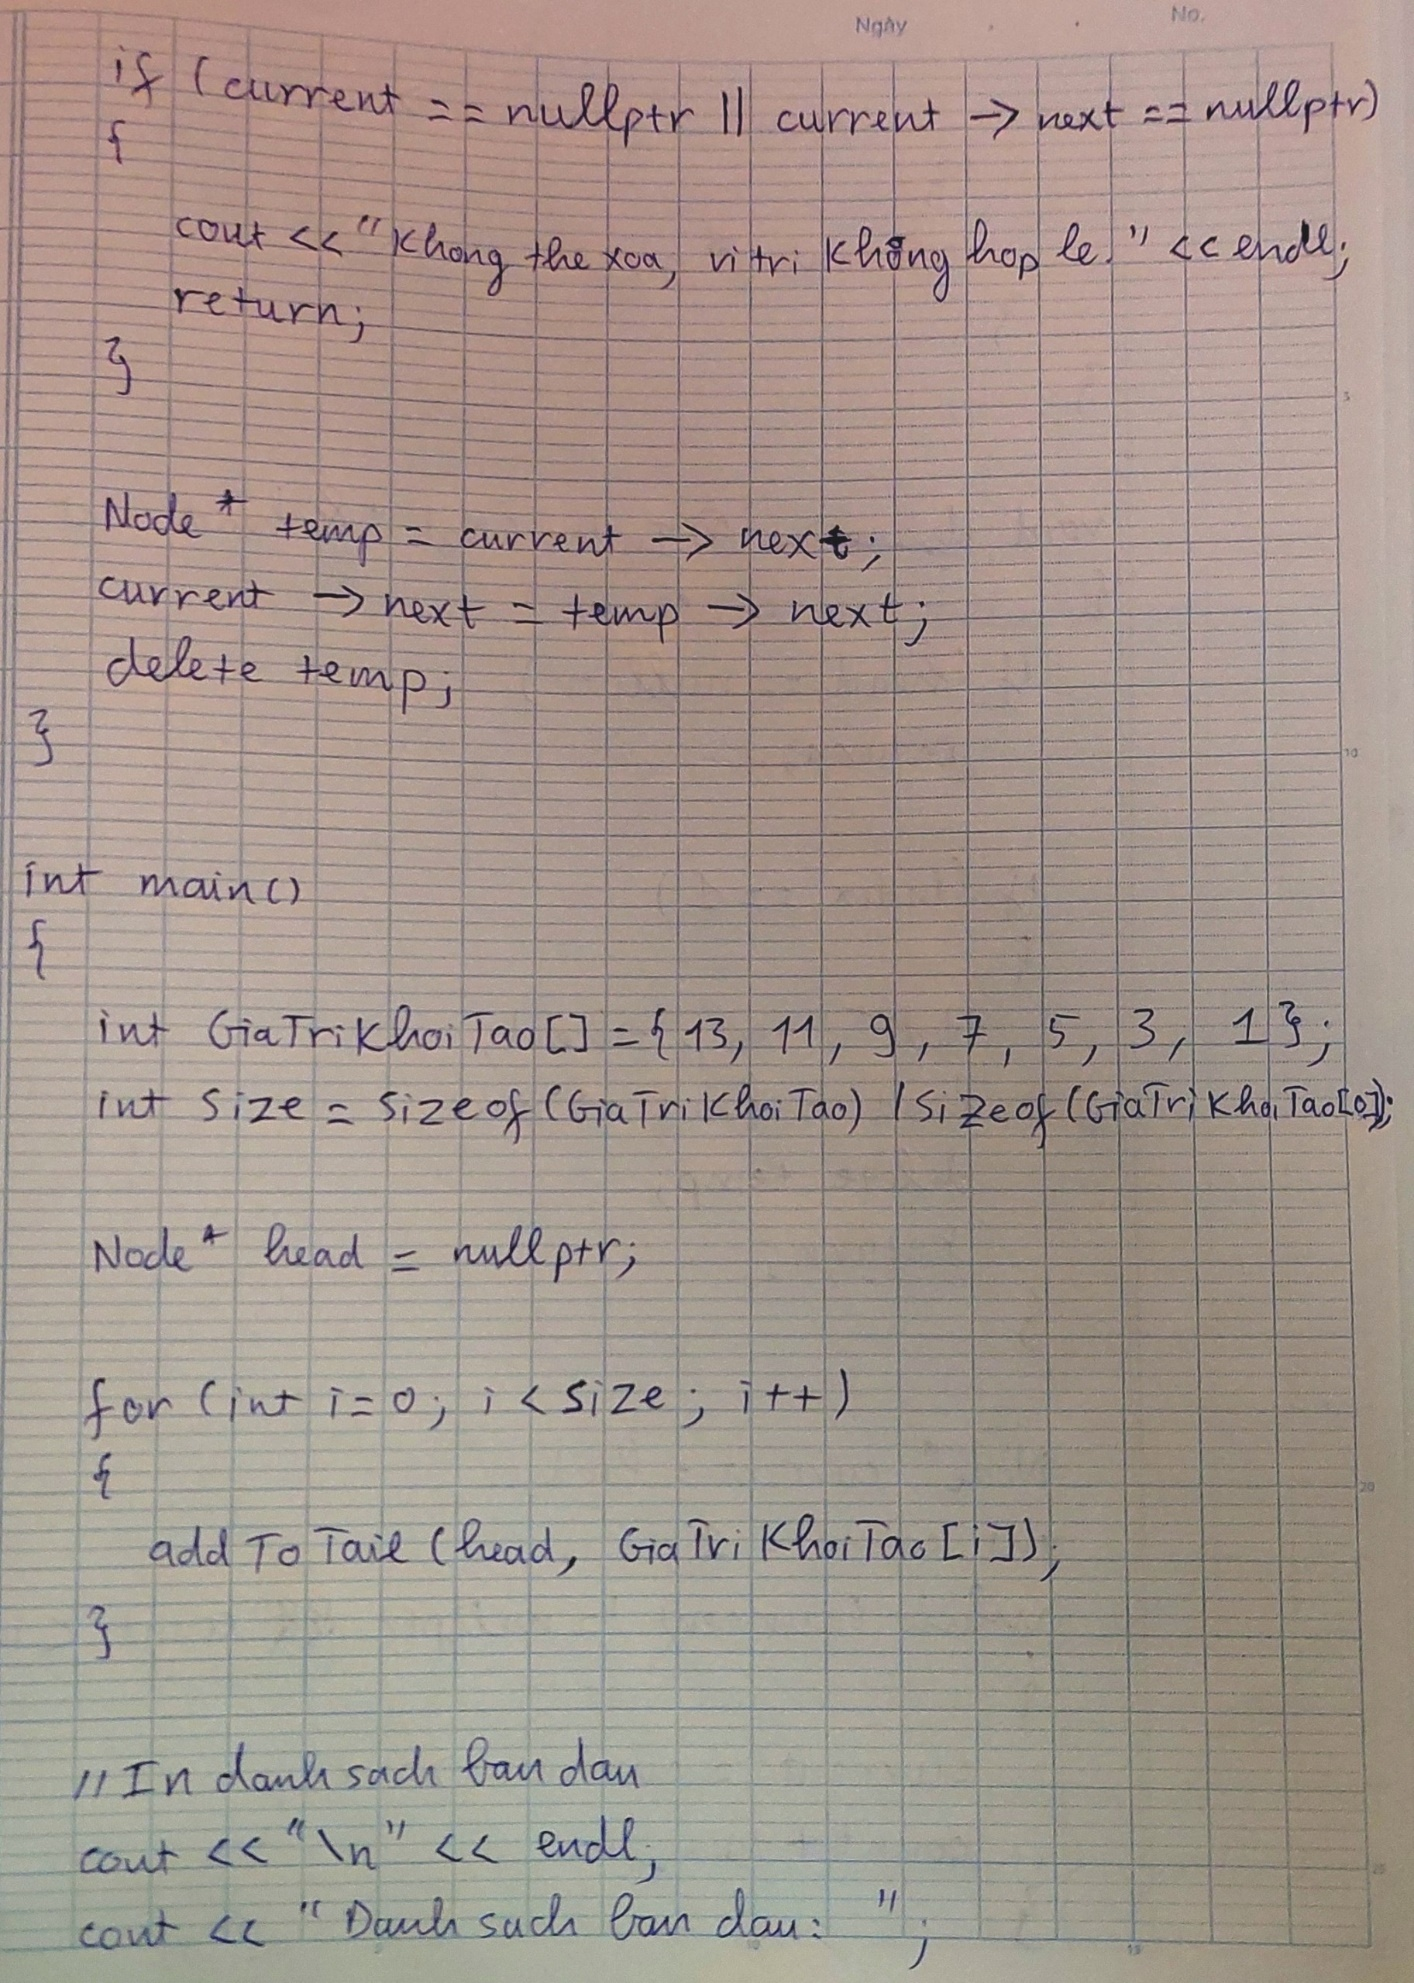 Ngày
No.
if (current == nullptr || current -> next == nullptr)
{
cout << "Khong the xoa, vi tri không hop le." << endl;
return;
}
5
Node* temp = current -> next;
current -> next = temp -> next;
delete temp;
}
10
int main()
{
int GiaTriKhoiTao[] = {13, 11, 9, 7, 5, 3, 1};
int size = sizeof(GiaTriKhoiTao) / sizeof(GiaTriKhoiTao[0]);
Node* head = nullptr;
for (int i=0; i < size; i++)
{
20
addToTail(head, GiaTriKhoiTao[i]);
}
// In danh sach ban dau
cout << "\n" << endl;
25
cout << "Danh sach ban dau: ";
5 10 15